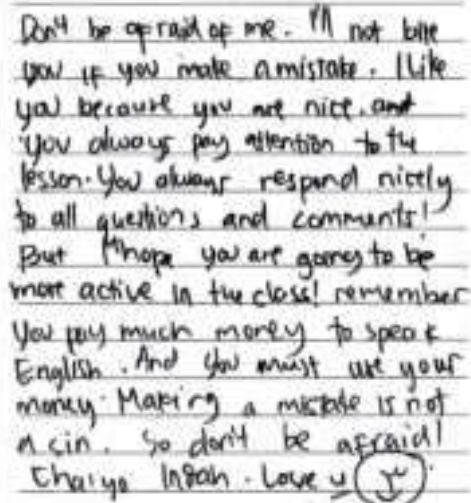 Don't be afraid of me. I'll not bite
you if you make a mistake. I like
you because you are nice. and
you always pay attention to the
lesson. You always respond nicely
to all questions and comments!
But I hope you are going to be
more active in the class! remember
You pay much money to speak
English. And you must use your
money. Making a mistake is not
a sin. So don't be afraid!
Chaiyo Indah. Love u